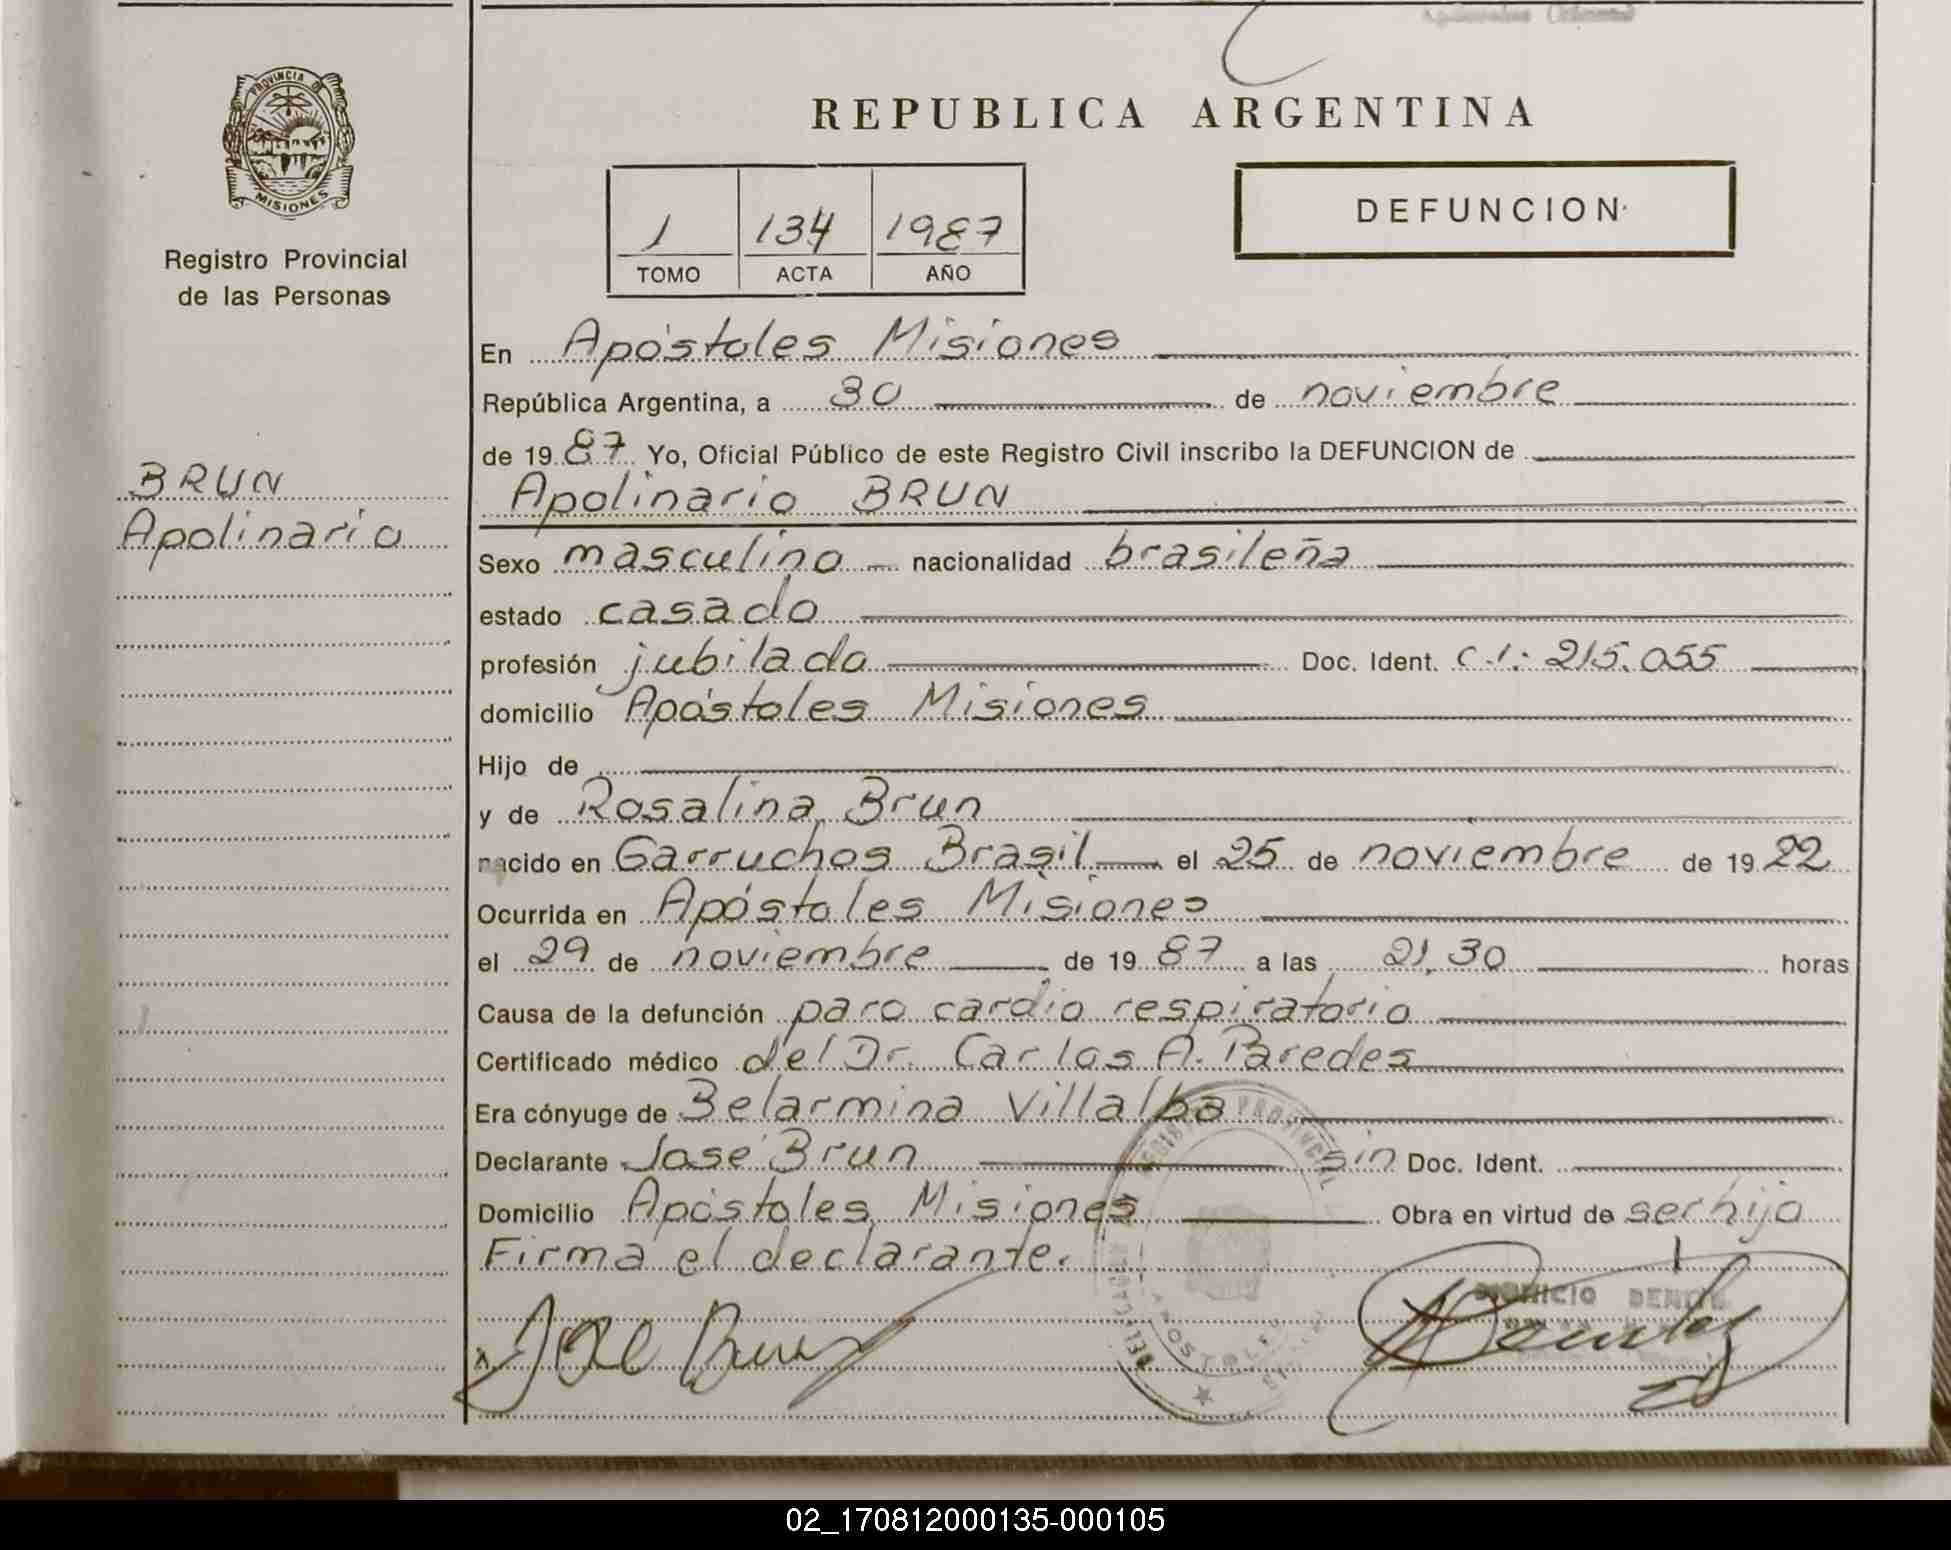 REPUBLICA ARGENTINA
PROVINCIA D
MISIONES
Registro Provincial
de las Personas
1 134 1987
TOMO ACTA AÑO
DEFUNCION
BRUN
Apolinario
En Apóstoles Misiones
República Argentina, a 30 de noviembre
de 1987 Yo, Oficial Público de este Registro Civil inscribo la DEFUNCION de
Apolinario BRUN
Sexo masculino nacionalidad brasileña
estado casado
profesión jubilado Doc. Ident. C.I: 215.055
domicilio Apóstoles Misiones
Hijo de
y de Rosalina Brun
nacido en Garruchos Brasil el 25 de noviembre de 1922
Ocurrida en Apóstoles Misiones
el 29 de noviembre de 1987 a las 21,30 horas
Causa de la defunción paro cardio respiratorio
Certificado médico del Dr. Carlos A. Paredes
Era cónyuge de Belarmina Villalba
Declarante José Brun sin Doc. Ident.
Domicilio Apóstoles Misiones Obra en virtud de ser hijo
Firma el declarante.
José Brun
PROVINCIAL
APOSTOLES
02_170812000135-000105